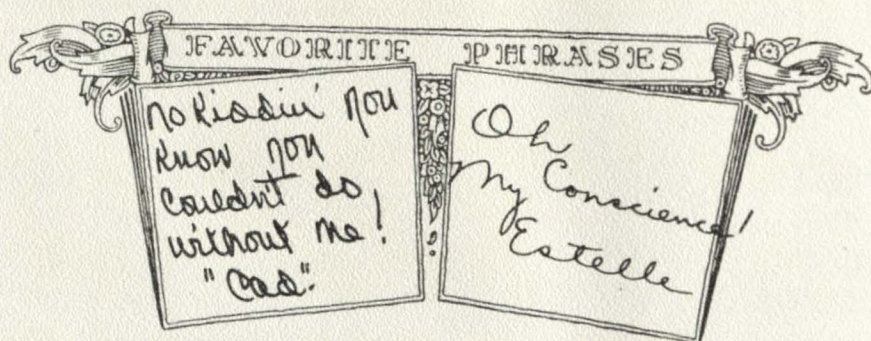 FAVORITE PHRASES
no kiddin' you
know you
couldn't do
without me!
"Cad".
Oh
My Conscience!
Estelle